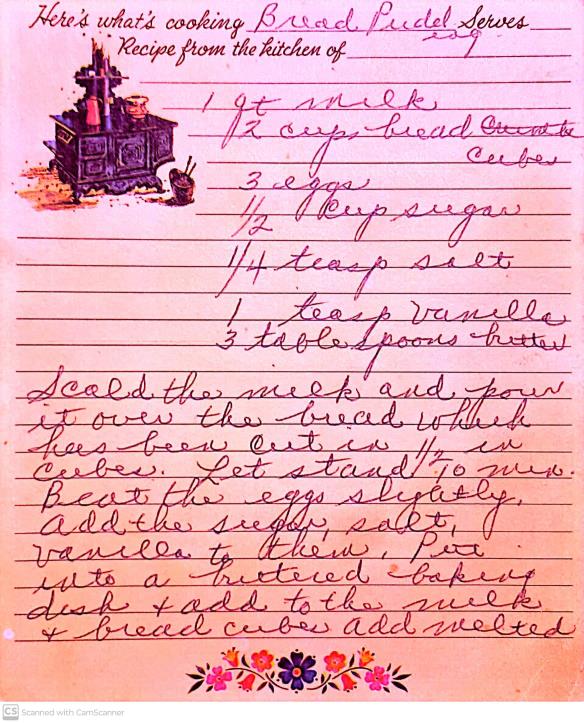 Here's what's cooking Bread Pudd Serves
ing
Recipe from the kitchen of
1 qt milk
2 cups bread
cubes
3 eggs
1/2 cup sugar
1/4 teasp salt
1 teasp vanilla
3 table spoons butter
Scald the milk and pour
it over the bread which
has been cut in 1/2 in
cubes. Let stand 10 min.
Beat the eggs slightly,
add the sugar, salt,
vanilla to them. Put
into a buttered baking
dish & add to the milk
& bread cubes add melted
CS Scanned with CamScanner